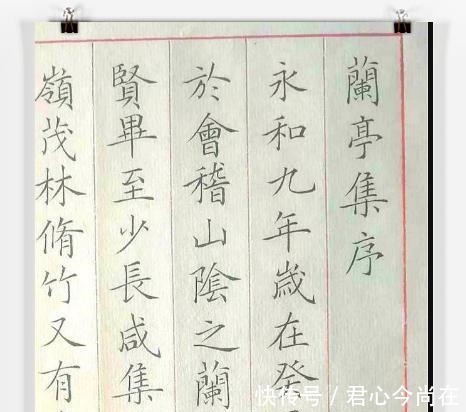 蘭亭集序
永和九年歲在癸
於會稽山陰之蘭
賢畢至少長咸集
嶺茂林脩竹又有
快传号/君心今尚在